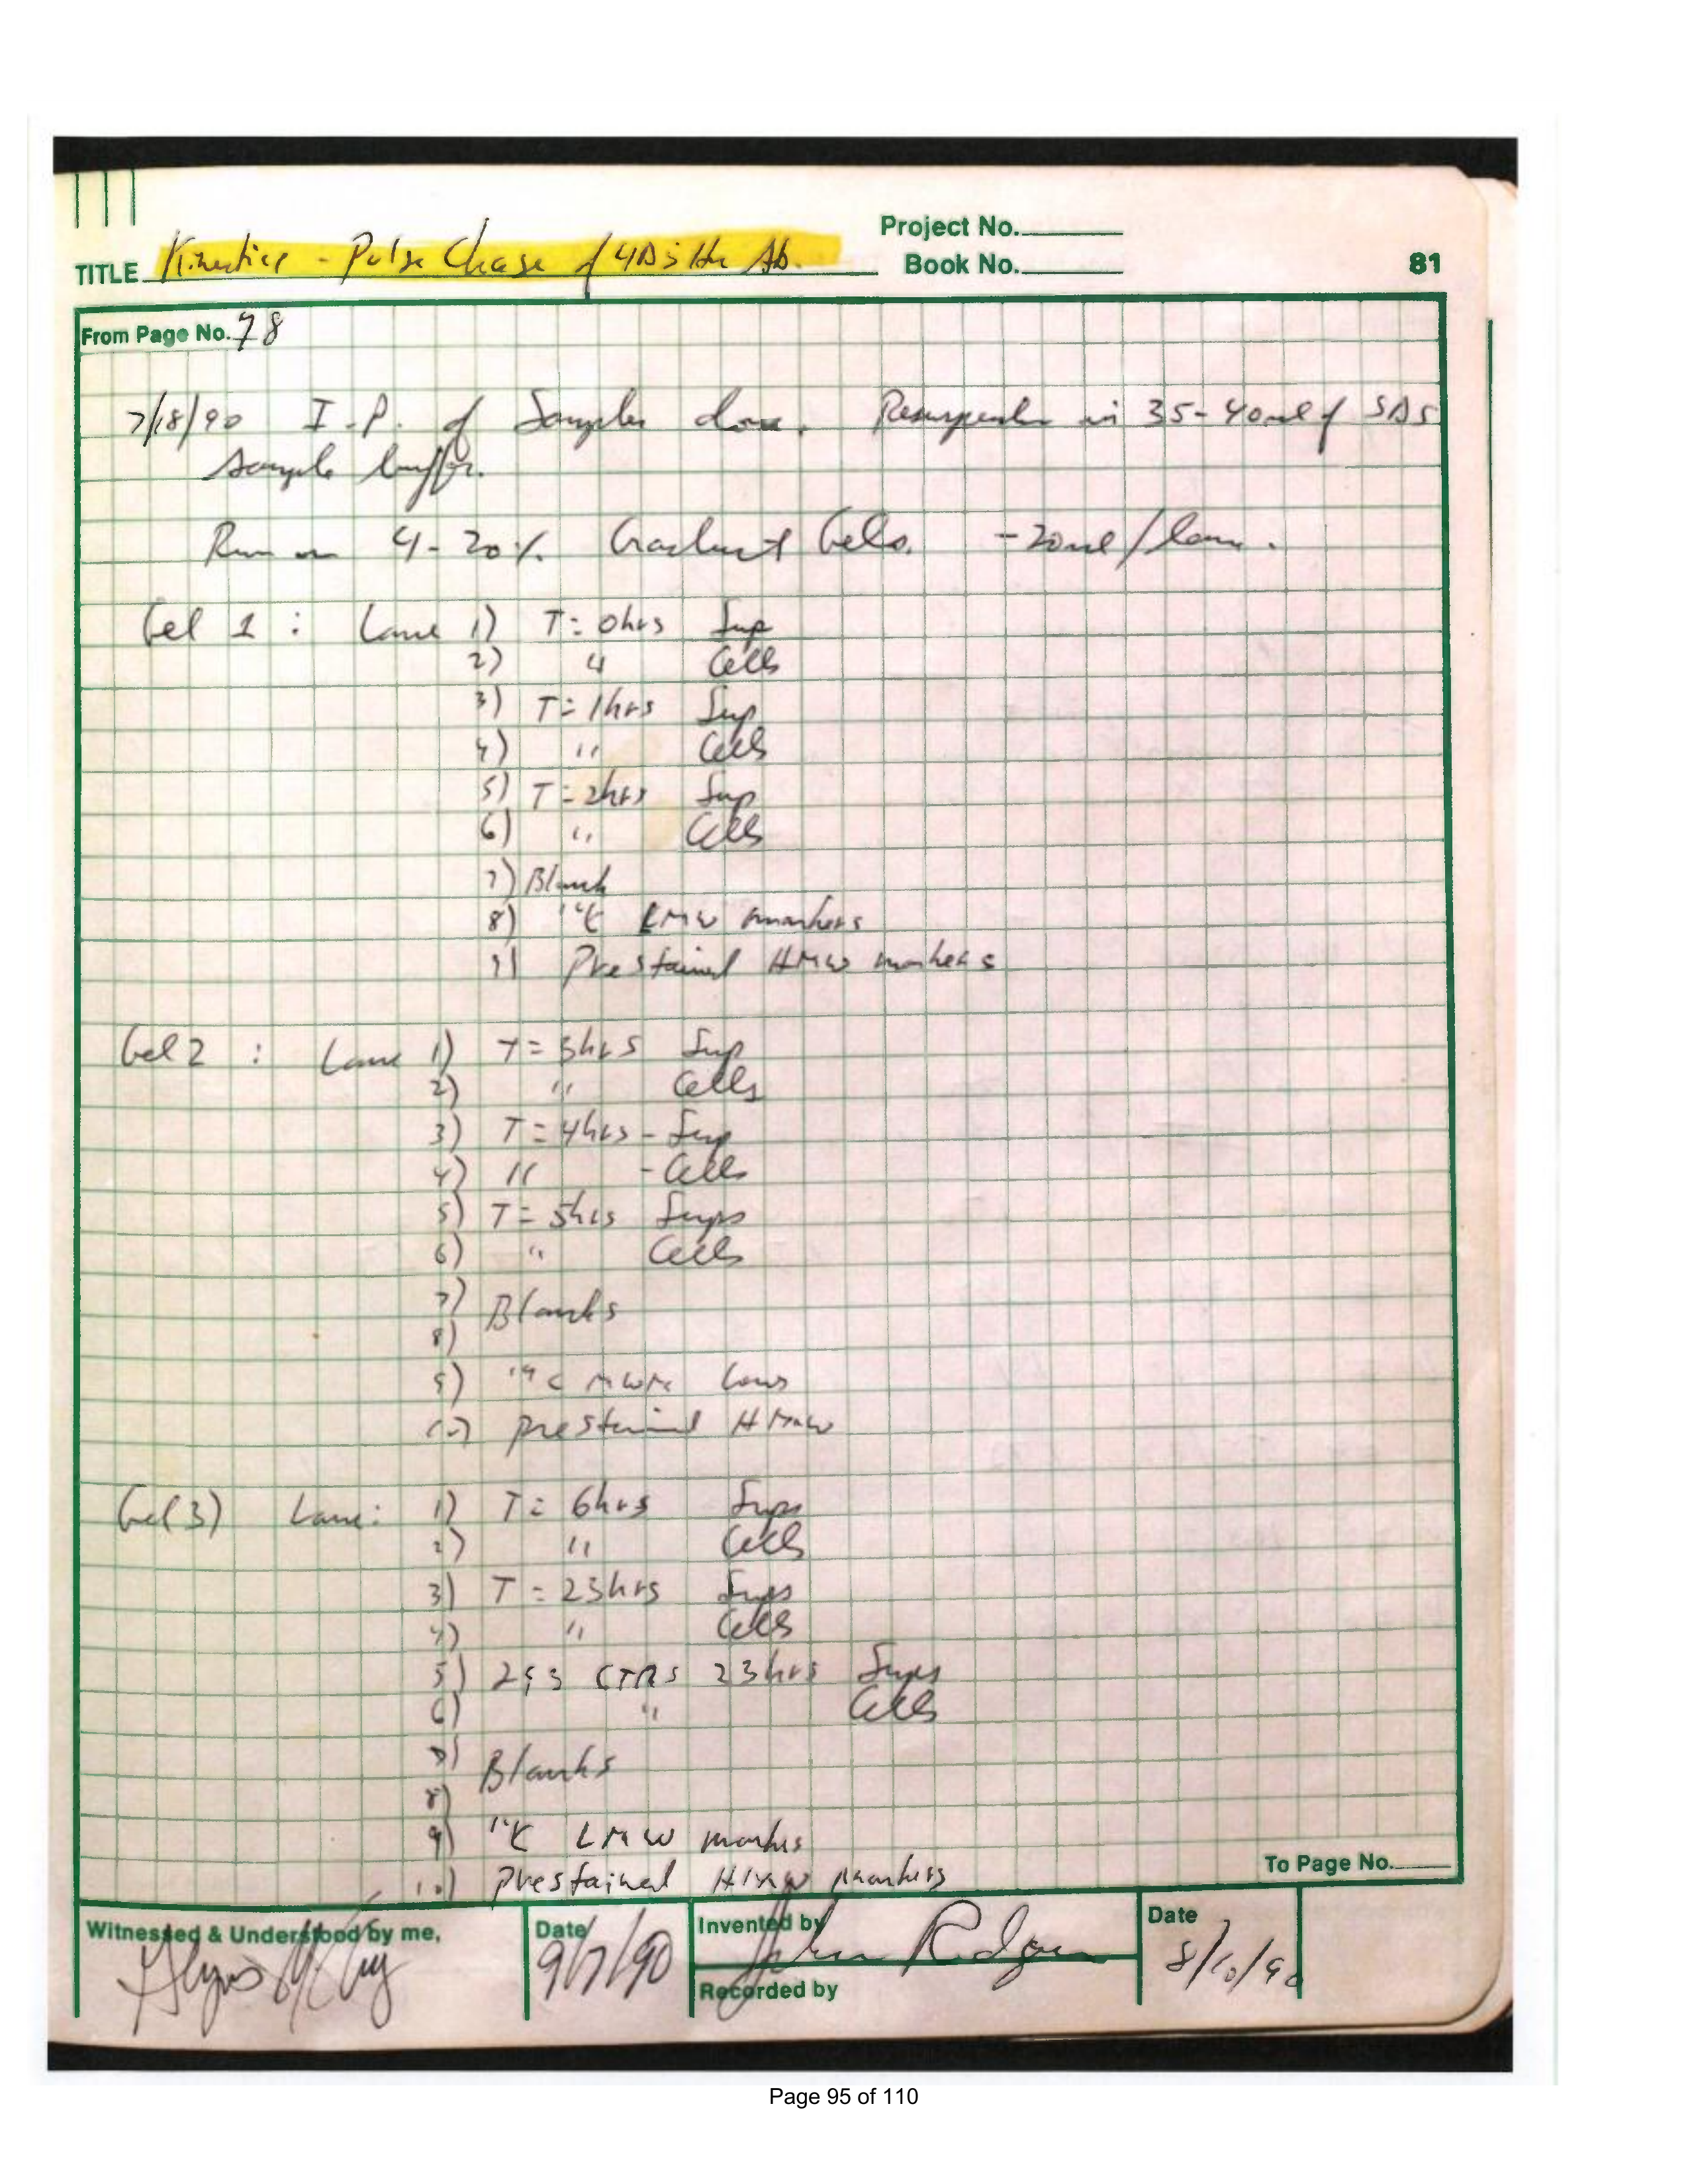 Project No.
TITLE Kinetics - Pulse Chase of 4D5 Hu Ab.
Book No.
81
From Page No. 78
7/18/90 I.P. of Samples done. Resuspended in 35-40ul of SDS
sample buffer.
Run on 4-20% Gradient Gels. -20ul/lane.
Gel 1 : Lane 1) T= 0hrs Sup
2) " Cells
3) T= 1hrs Sup
4) " Cells
5) T= 2hrs Sup
6) " Cells
7) Blank
8) 14C LMW markers
9) Prestained HMW markers
Gel 2 : Lane 1) T= 3hrs Sup
2) " Cells
3) T= 4hrs - Sup
4) " - Cells
5) T= 5hrs Sups
6) " Cells
7) Blanks
8)
9) 14C MWM Low
10) Prestained HMW
Gel 3) Lane: 1) T= 6hrs Sups
2) " Cells
3) T= 23hrs Sups
4) " Cells
5) 293 CTRS 23hrs Sups
6) " Cells
7) Blanks
8)
9) 14C LMW markers
10) Prestained HMW markers
To Page No.
Witnessed & Understood by me,
Date
9/7/90
Invented by
Recorded by
Date
8/10/90
Page 95 of 110